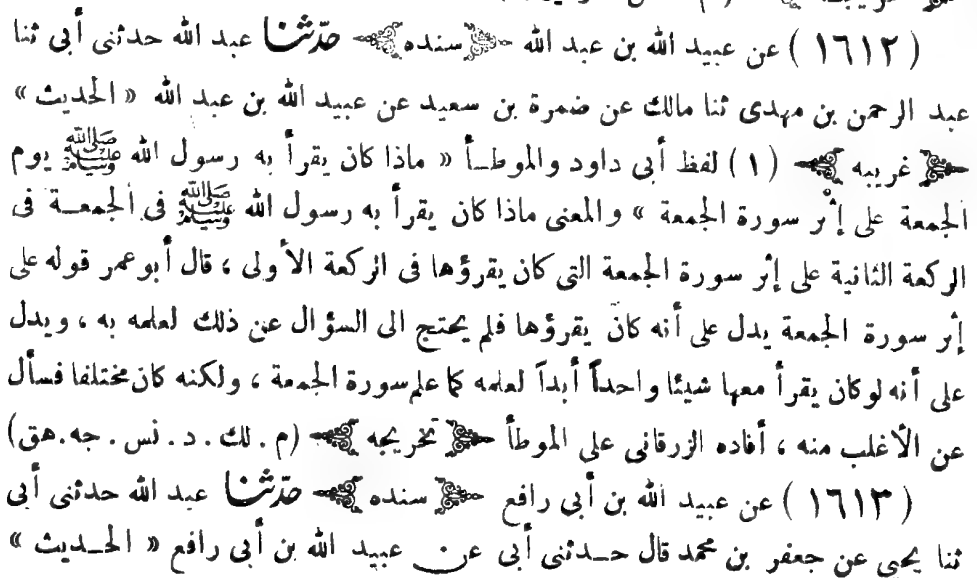 (١٦١٢) عن عبيد الله بن عبد الله ﴿ سنده ﴾ حدّثنا عبد الله حدثنى أبى ثنا
عبد الرحمن بن مهدى ثنا مالك عن ضمرة بن سعيد عن عبيد الله بن عبد الله « الحديث »
﴿ غريبه ﴾ (١) لفظ أبى داود والموطــأ « ماذا كان يقرأ به رسول الله ﷺ يوم
الجمعة على إثر سورة الجمعة » والمعنى ماذا كان يقرأ به رسول الله ﷺ فى الجمعــة فى
الركعة الثانية على إثر سورة الجمعة التى كان يقرؤها فى الركعة الأولى ، قال أبو عمر قوله على
إثر سورة الجمعة يدل على أنه كان يقرؤها فلم يحتج الى السؤال عن ذلك لعلمه به ، ويدل
على أنه لوكان يقرأ معها شيئا واحداً أبداً لعلمه كما علم سورة الجمعة ، ولكنه كان مختلفا فسأل
عن الأغلب منه ، أفاده الزرقانى على الموطأ ﴿ تخريجه ﴾ (م . لك . د . نس . جه . هق)
(١٦١٣) عن عبيد الله بن أبى رافع ﴿ سنده ﴾ حدّثنا عبد الله حدثنى أبى
ثنا يحيى عن جعفر بن محمد قال حــدثنى أبى عن عبيد الله بن أبى رافع « الحــديث »